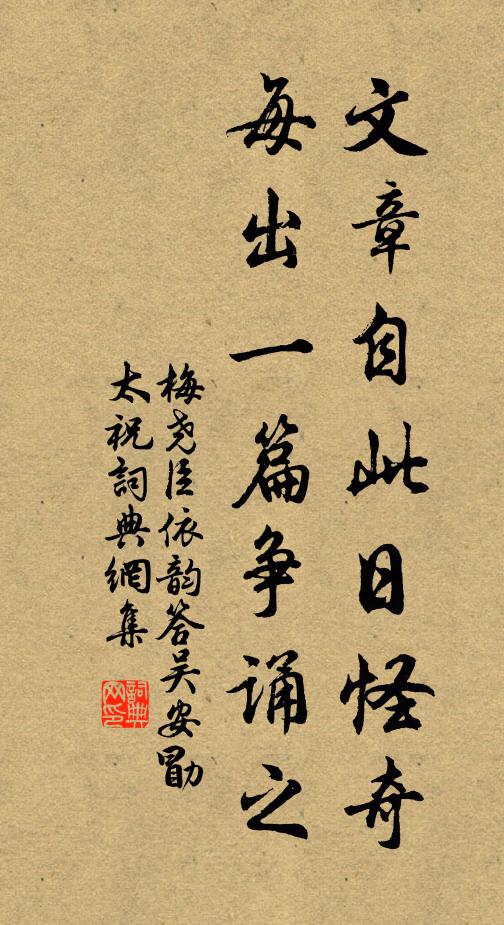 文章自此日怪奇
每出一篇争诵之
梅尧臣依韵答吴安勖
太祝詞典網集
詞典网印